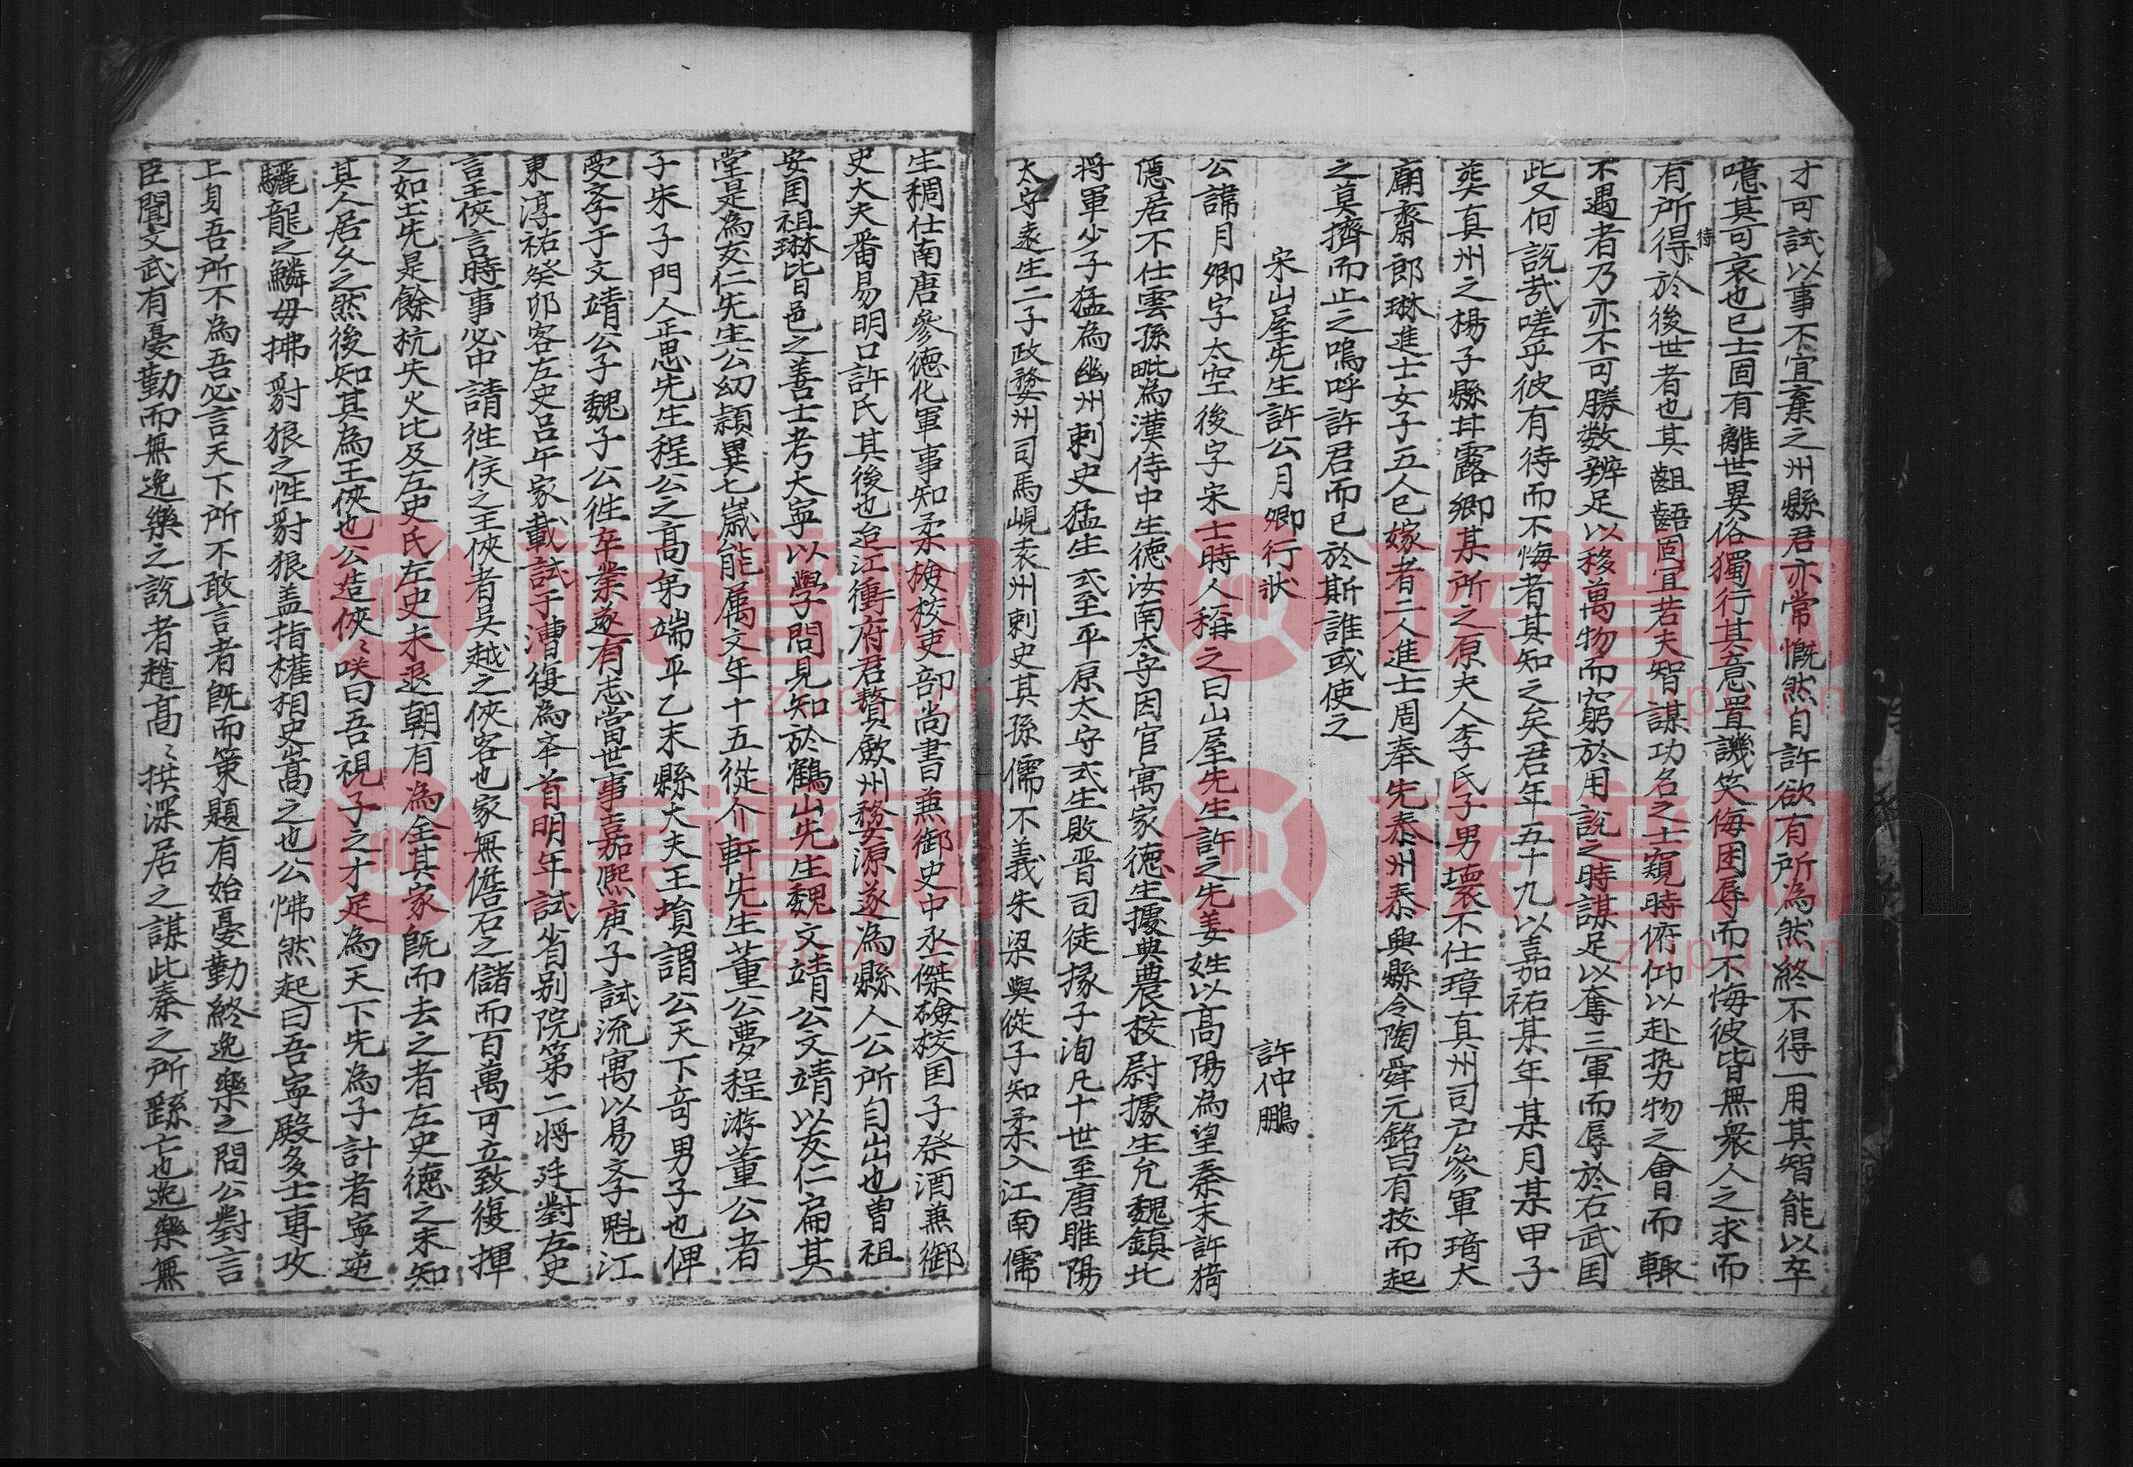 才可試以事不宜棄之州縣君亦常慨然自許欲有所為然終不得一用其智能以卒
噫其可哀也已士固有離世異俗獨行其意罵譏笑侮困辱而不悔彼皆無衆人之求而
有所得待於後世者也其齟齬固宜若夫智謀功名之士窺時俯仰以赴势物之會而輒
不遇者乃亦不可勝数辨足以移萬物而窮於用說之時謀足以奪三軍而辱於右武国
此又何説哉嗟乎彼有待而不悔者其知之矣君年五十九以嘉祐某年某月某甲子
葬真州之楊子縣甘露鄉某所之原夫人李氏子男瓌不仕璋真州司戸參軍琦太
廟齋郎琳進士女子五人已嫁者二人進士周奉先泰州泰興縣令陶舜元銘曰有拔而起
之莫擠而止之嗚呼許君而已於斯誰或使之
宋山屋先生許公月卿行狀
許仲鵬
公諱月卿字太空後字宋士時人稱之曰山屋先生許之先姜姓以高陽為望秦末許猗
隱居不仕雲孫毗為漢侍中生德汝南太守因官寓家德生據典農校尉據生允魏鎮北
将軍少子猛為幽州刺史猛生式至平原太守式生販晋司徒掾子洵凡十世至唐睢陽
太守遠生二子政婺州司馬峴袁州刺史其孫儒不義朱梁與從子知柔入江南儒
生稠仕南唐參德化軍事知柔檢校吏部尚書兼御史中丞傑檢校国子祭酒兼御
史大夫番易明口許氏其後也迨江衝府君贅歙州婺源遂為縣人公所自出也曽祖
安国祖琳皆邑之善士考大寧以學問見知於鶴山先生魏文靖公文靖以友仁扁其
堂是為友仁先生公幼穎異七歲能属文年十五從介軒先生董公夢程游董公者
子朱子門人正思先生程公之高弟端平乙未縣大夫王塤謂公天下奇男子也俾
受斈于文靖公子魏子公徃卒業遂有志當世事嘉熙庚子試流寓以易斈魁江
東淳祐癸卯客左史吕午家載試于漕復為夲首明年試省别院第二将廷對左史
言王俠言時事必中請徃俟之王俠者吳越之俠客也家無儋石之儲而百萬可立致復揮
之如土先是餘杭失火比及左史氏左史未退朝有為全其家旣而去之者左史德之未知
其人居久之然後知其為王俠也公造俠〻咲曰吾視子之才足為天下先為子計者寧逆
驪龍之鱗毋拂豺狼之性豺狼盖指權相史嵩之也公怫然起曰吾寧殿多士専攻
上身吾所不為吾必言天下所不敢言者旣而策題有始憂勤終逸樂之問公對言
臣聞文武有憂勤而無逸樂之説者趙高〻拱深居之謀此秦之所繇亡也逸樂無